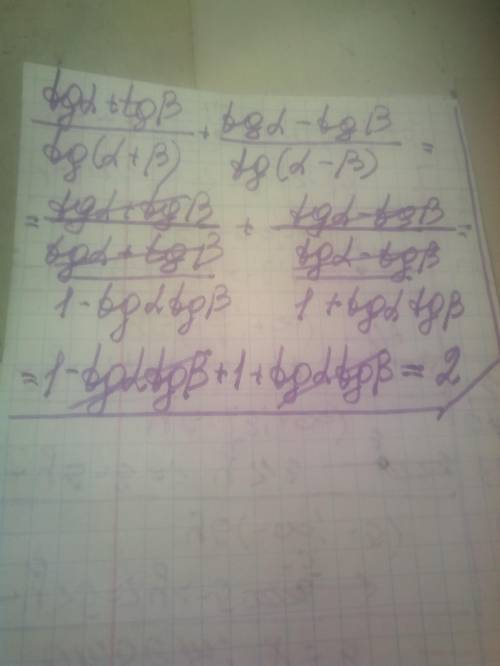 tgα + tgβ + tgα - tgβ =
tg(α + β) tg(α - β)
= tgα + tgβ + tgα - tgβ =
tgα + tgβ tgα - tgβ
1 - tgαtgβ 1 + tgαtgβ
= 1 - tgαtgβ + 1 + tgαtgβ = 2